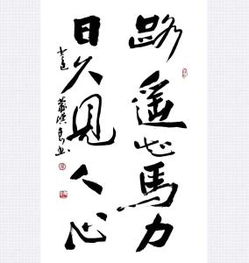 路遥知馬力
日久見人心